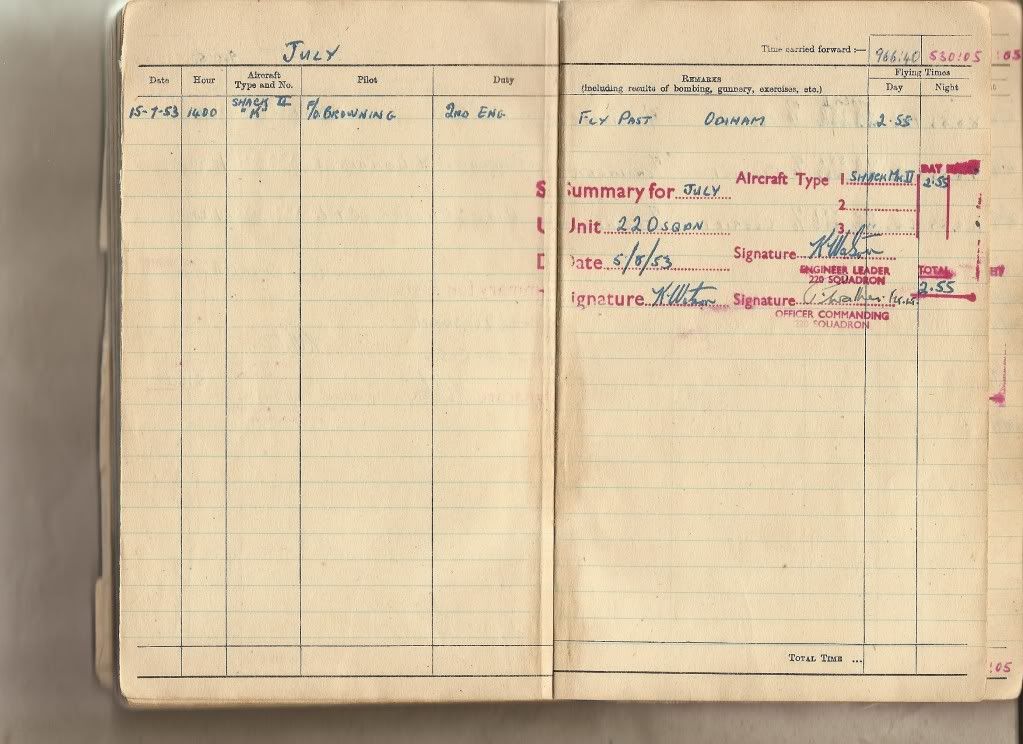 JULY
Time carried forward :— 966:40 530:05 :05
Date Hour Aircraft Type and No. Pilot Duty
REMARKS (Including results of bombing, gunnery, exercises, etc.) Flying Times Day Night
15-7-53 1400 SHACK II "K" F/O BROWNING 2ND ENG FLY PAST ODIHAM 2.55
Summary for JULY Aircraft Type 1 SHACK Mk II DAY 2.55
Unit 220 SQDN 2
3
Date 5/8/53 Signature K Watson
ENGINEER LEADER
220 SQUADRON
TOTAL
2.55
Signature K Watson Signature
OFFICER COMMANDING
220 SQUADRON
TOTAL TIME ...
:05